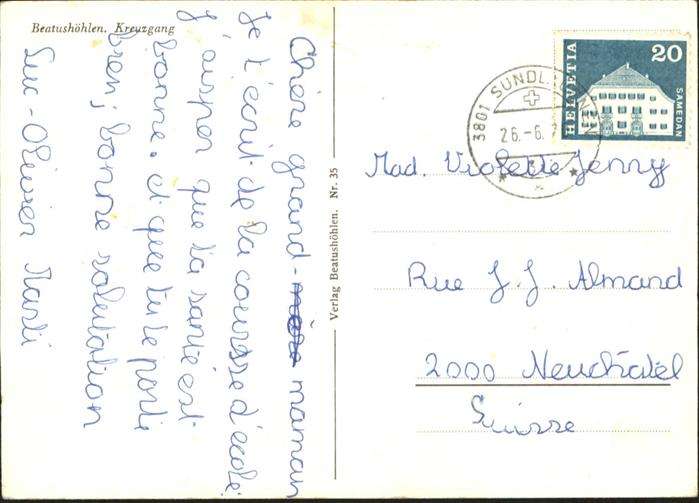 Beatushöhlen. Kreuzgang
Chère grand-mère maman
Je t'écrit de la coursse d'école
J'aisper que ta santé est
bonne. et que tu te porte
bien; bonne salutation
Luc-Olivier Marti
Verlag Beatushöhlen. Nr. 35
HELVETIA
20
SAMEDAN
3801 SUNDL
26.-6.
Mad. Violette Jenny
Rue J. J. Almand
2000 Neuchâtel
Suisse